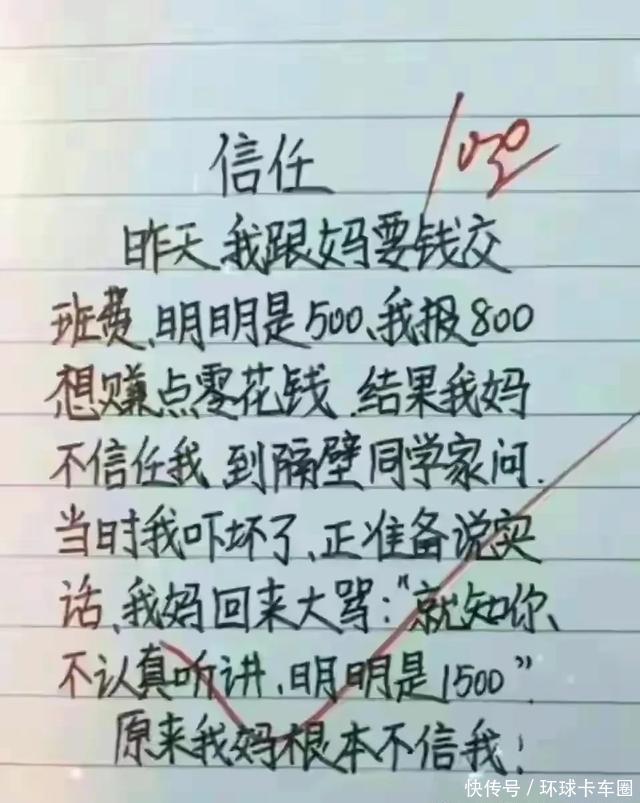 100
信任
昨天我跟妈要钱交
班费、明明是500、我报800
想赚点零花钱.结果我妈
不信任我.到隔壁同学家问.
当时我吓坏了、正准备说实
话、我妈回来大骂:"就知你、
不认真听讲、明明是1500"
原来我妈根本不信我!
快传号/环球卡车圈